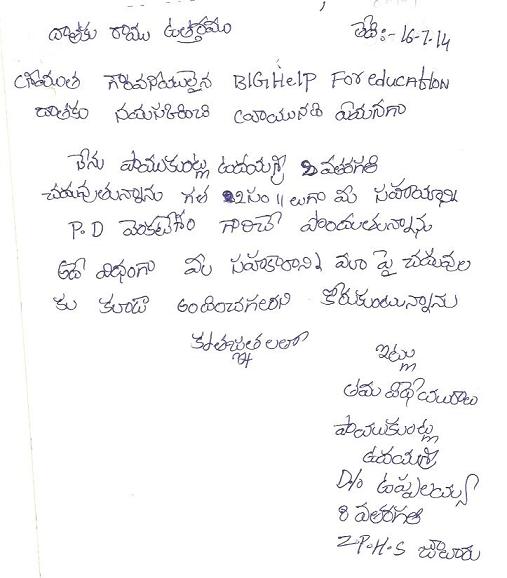 దాతకు రాము ఉత్తరము తేది:- 16-7-14
గౌరవనీయులైన BIG Help For education
దాతకు నమస్కరించి వ్రాయునది ఏమనగా
నేను పాముకుంట్ల ఉదయశ్రీ 8 వతరగతి
చదువుతున్నాను గత 2 సం॥లుగా మీ సహాయాన్ని
P.D వెంకటేశం గారిచే పొందుతున్నాను
అదే విధంగా మీ సహకారాన్ని మా పై చదువుల
కు కూడా అందించగలరని కోరుకుంటున్నాను
కృతజ్ఞతలతో
ఇట్లు
తమ విధేయురాలు
పాముకుంట్ల
ఉదయశ్రీ
D/o ఉప్పలయ్య
8 వతరగతి
Z.P.H.S